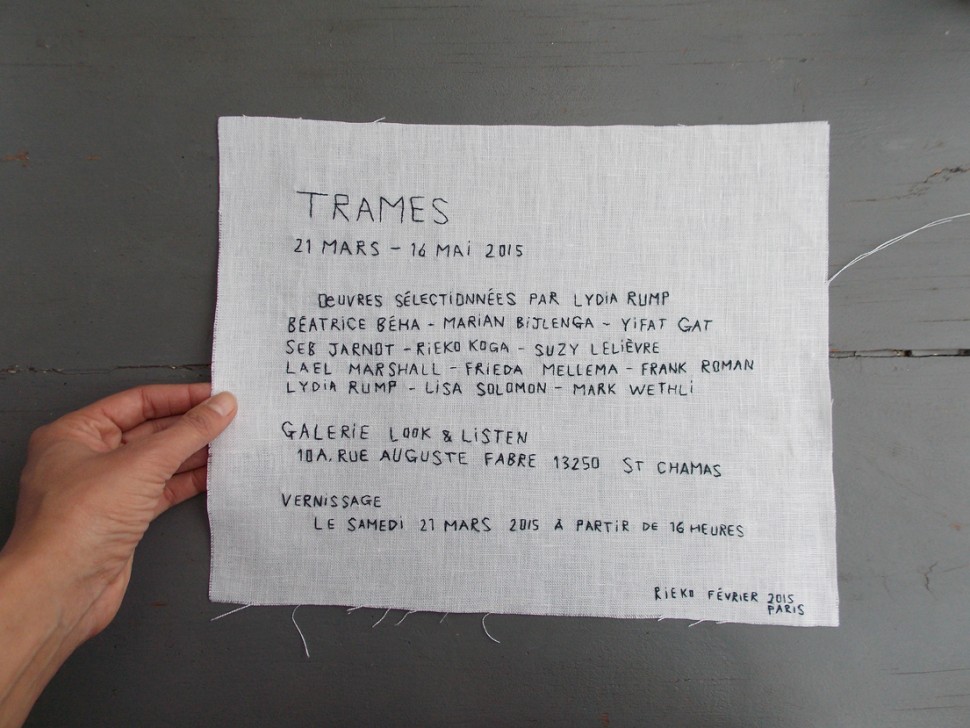 TRAMES
21 MARS - 16 MAi 2015
OeUVRES SÉLECTIONNÉES PAR LYDiA RUMP
BÉATRICE BÉHA - MARiAN BiJLENGA - YiFAT GAT
SEB JARNOT - RiEKO KOGA - SUZY LELiÈVRE
LAEL MARSHALL - FRiEDA MELLEMA - FRANK ROMAN
LYDiA RUMP - LiSA SOLOMON - MARK WETHLi
GALERiE LOOK & LiSTEN
10A, RUE AUGUSTE FABRE 13250 ST CHAMAS
VERNiSSAGE
LE SAMEDi 21 MARS 2015 À PARTiR DE 16 HEURES
RiEKO FÉVRIER 2015
PARiS